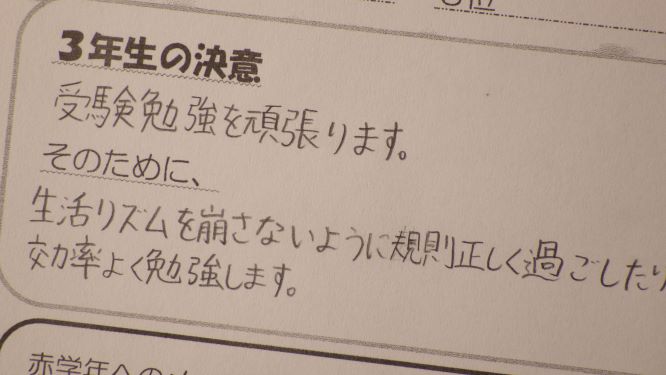 位
3年生の決意
受験勉強を頑張ります。
そのために、
生活リズムを崩さないように規則正しく過ごしたり
効率よく勉強します。
赤学年への